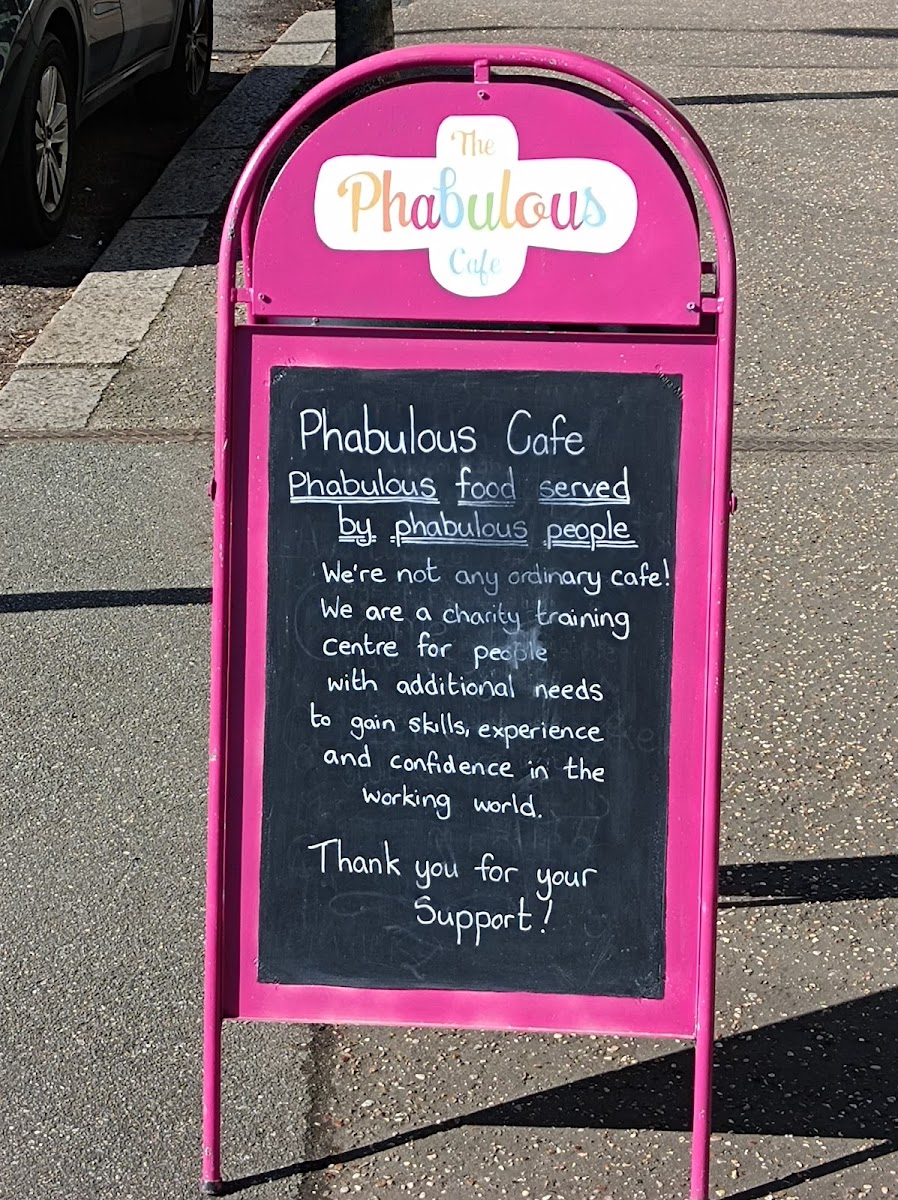 The
Phabulous
Cafe
Phabulous Cafe
Phabulous food served
by phabulous people
We're not any ordinary cafe!
We are a charity training
centre for people
with additional needs
to gain skills, experience
and confidence in the
working world.
Thank you for your
Support!